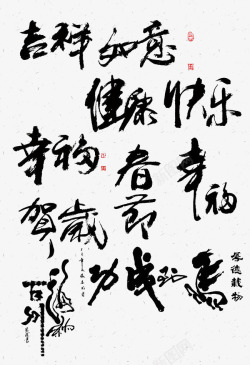 吉祥如意
健康快乐
幸福
春节
幸福
贺岁
马到成功
厚德载物